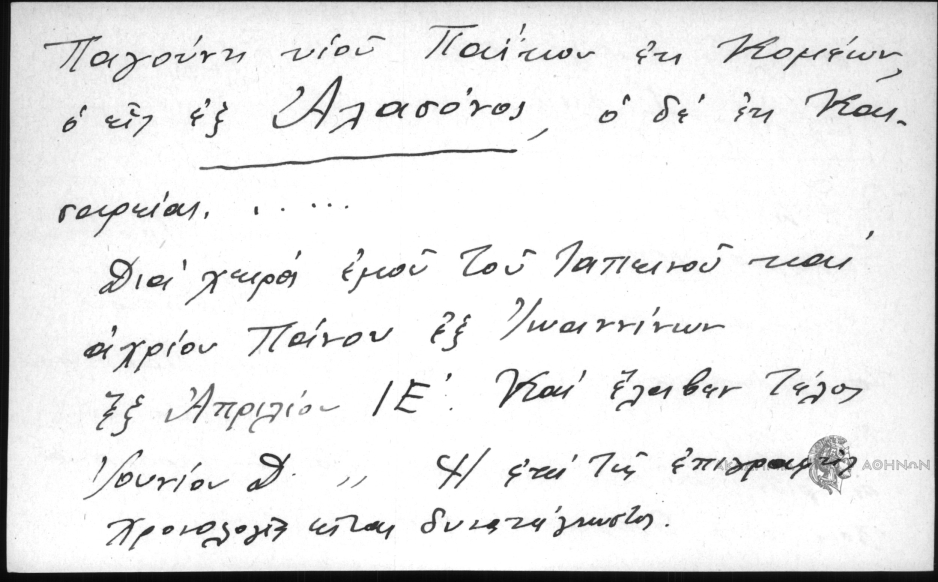 Παγούνη υἱοῦ Παΐκου ἐκ Κομέων,
ὁ εἷς ἐξ Ἀλασόνος, ὁ δέ ἐκ Και-
σαρείας. . . . . .
Διά χειρός ἐμοῦ τοῦ ταπεινοῦ και
ἀχρίου Πάνου ἐξ Ἰωαννίνων
ἐξ Ἀπριλίου ΙΕ΄. Καί ἔλαβεν τέλος
Ἰουνίου Δ. ,, Ἡ ἐπί τῆς ἐπιγραφῆς
χρονολογία εἶναι δυσανάγνωστος.
ΑΘΗΝΩΝ